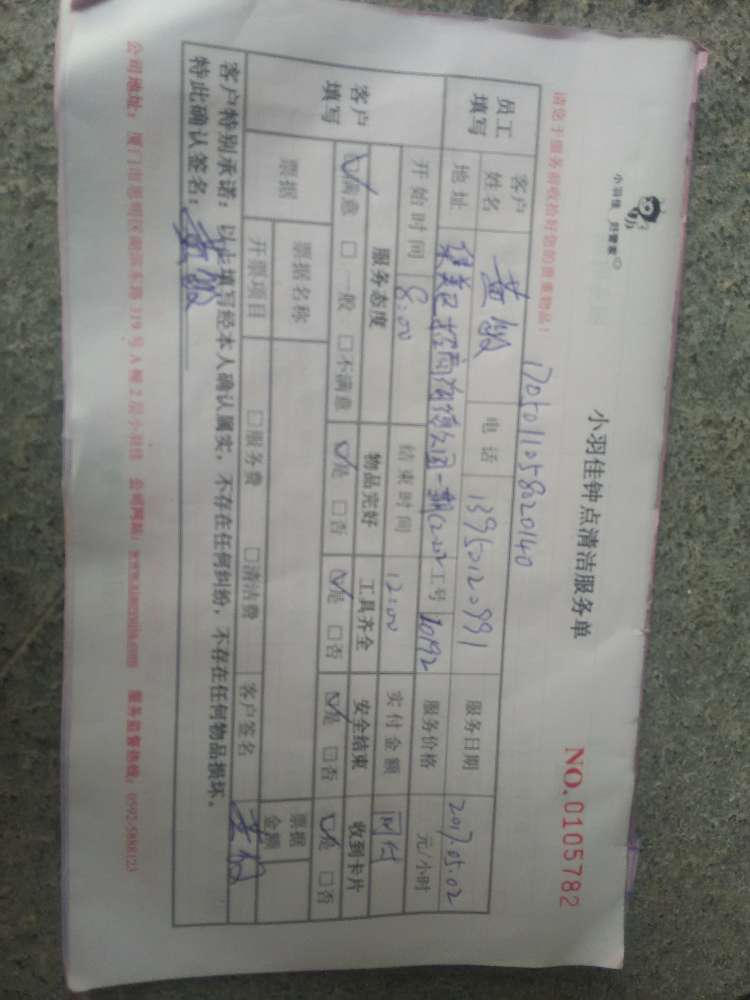 小羽佳 好管家
小羽佳钟点清洁服务单
NO.0105782
请您于服务前收拾好您的贵重物品！
170501105820140
员工填写
客户姓名 黄敏 电话 13950120991 服务日期 2017.05.02
地址 集美区招商海德公园一期 工号 10192 服务价格 元/小时
客户填写
开始时间 8:00 结束时间 12:00 实付金额 网付
服务态度 物品完好 工具齐全 安全结束 收到卡片
☑满意 □一般 □不满意 ☑是 □否 ☑是 □否 ☑是 □否 ☑是 □否
票据 票据名称 票据金额
开票项目 □服务费 □清洁费 客户签名 黄敏
客户特别承诺：以上填写经本人确认属实，不存在任何纠纷，不存在任何物品损坏。
特此确认签名：黄敏
公司地址：厦门市思明区湖滨东路319号A幢2层小羽佳 公司网站：www.xiaoyujia.com 服务监督热线：0592-5888123